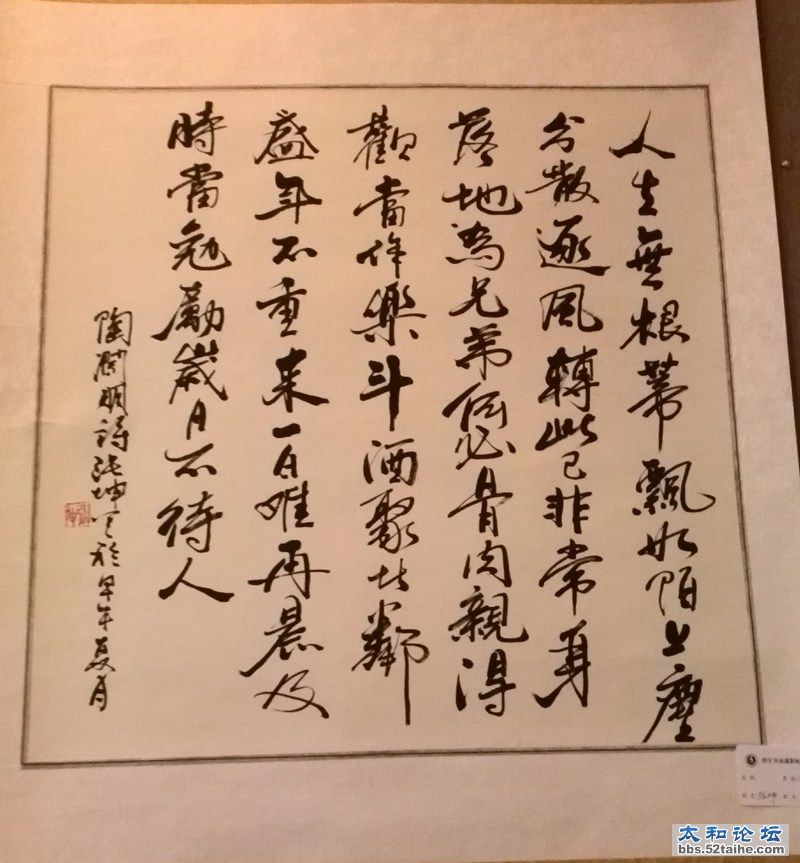 人生無根蒂飄如陌上塵
分散逐風轉此已非常身
落地為兄弟何必骨肉親得
觀當作樂斗酒聚比鄰
盛年不重來一日難再晨及
時當勉勵歲月不待人
陶淵明詩張坤书於甲午夏月
太和论坛
bbs.52taihe.com